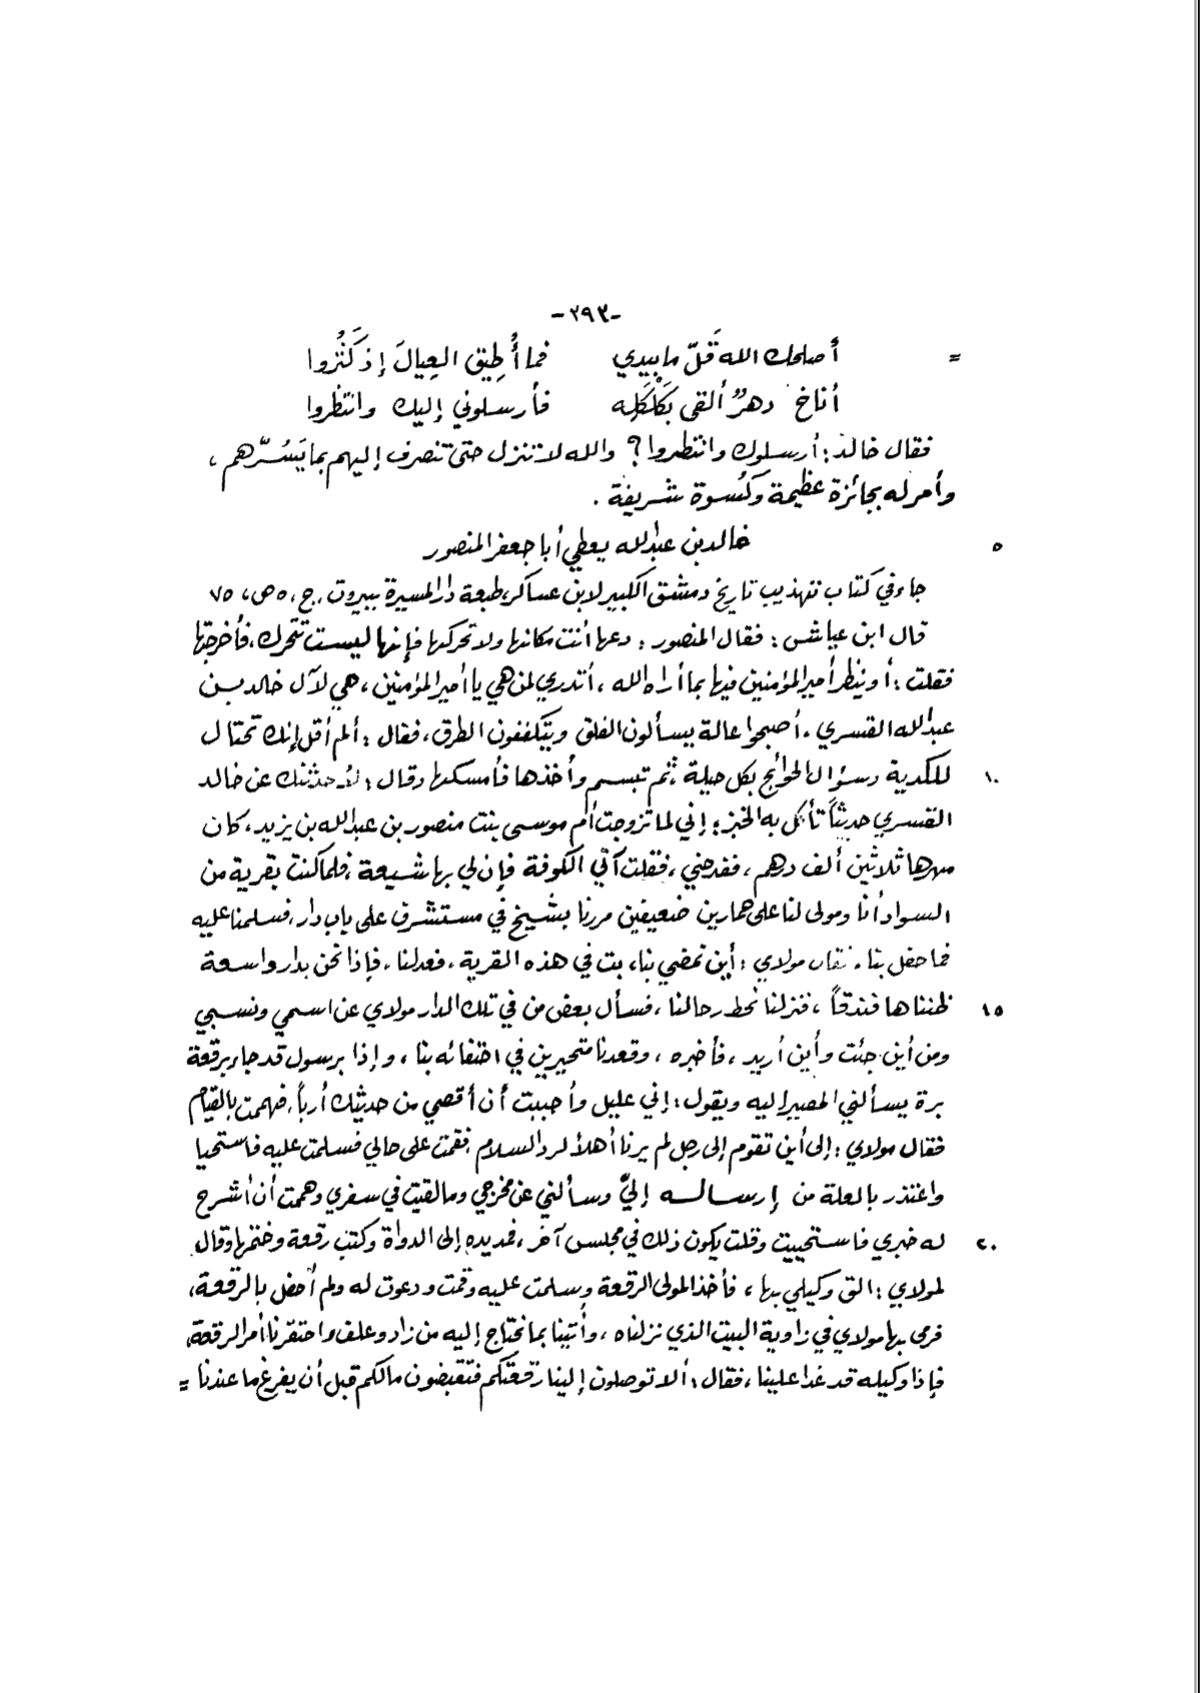 -٢٩٣-
= أصلحك الله قَلّ ما بيدي فما أُطِيق العِيالَ إذ كَثُروا
أناخ دهرٌ ألقى بكَلْكَلِه فأرسلوني إليك وانتظروا
فقال خالد: أرسلوك وانتظروا؟ والله لا تنزل حتى تنصرف إليهم بما يَسُرّهم،
وأمر له بجائزة عظيمة وكُسوة شريفة.
٥ خالد بن عبدالله يعطي أبا جعفر المنصور
جاء في كتاب تهذيب تاريخ دمشق الكبير لابن عساكر، طبعة دار المسيرة ببيروت، ج، ٥ ص، ٧٥
قال ابن عياش: فقال المنصور: دعها أنت مكانها ولا تحركها فإنها ليست تتحرك، فأخرجتها
فقلت: أو ينظر أمير المؤمنين فيها بما أراه الله، أتدري لمن هي يا أمير المؤمنين، هي لآل خالد بن
عبدالله القسري، أصبحوا عالة يسألون الفلق ويتكففون الطرق، فقال: ألم أقل إنك تحتال
١٠ للكدية وسؤال الحوائج بكل حيلة ثم تبسم وأخذها فأمسكها وقال: لأحدثنك عن خالد
القسري حديثاً تأكل به الخبز: إني لما تزوجت أم موسى بنت منصور بن عبدالله بن يزيد، كان
مهرها ثلاثين ألف درهم، ففدحني، فقلت آتي الكوفة فإن لي بها شيعة، فلما كنت بقرية من
السواد أنا ومولى لنا على حمارين ضعيفين مررنا بشيخ في مستشرق على باب دار، فسلمنا عليه
فما حفل بنا. فقال مولاي: أين تمضي بنا، بت في هذه القرية، فعدلنا، فإذا نحن بدار واسعة
١٥ ظننّاها فندقاً، فنزلنا نحط رحالنا، فسأل بعض من في تلك الدار مولاي عن اسمي ونسبي
ومن أين جئت وأين أريد، فأخبره، وقعدنا متحيرين في اختفائه بنا، وإذا برسول قد جاء برقعة
برة يسألني المصير إليه ويقول: إني عليل وأحببت أن أقضي من حديثك أرباً، فهممت بالقيام
فقال مولاي: إلى أين تقوم إلى رجل لم يرنا أهلاً لرد السلام، فقمت على حالي فسلمت عليه فاستحيا
واعتذر بالعلة من إرساله إليَّ وسألني عن مخرجي وما لقيت في سفري وهممت أن أشرح
٢٠ له خبري فاستحييت وقلت يكون ذلك في مجلس آخر، فمد يده إلى الدواة وكتب رقعة وختمها وقال
لمولاي: الق وكيلي بها، فأخذ المولى الرقعة وسلمت عليه وقمت ودعوت له ولم أحفل بالرقعة،
فرمى بها مولاي في زاوية البيت الذي نزلناه، وأُتينا بما نحتاج إليه من زاد وعلف واحتقرنا أمر الرقعة،
فإذا وكيله قد غدا علينا، فقال: ألا توصلون إلينا رقعتكم فتقبضون مالكم قبل أن يفرغ ما عندنا =